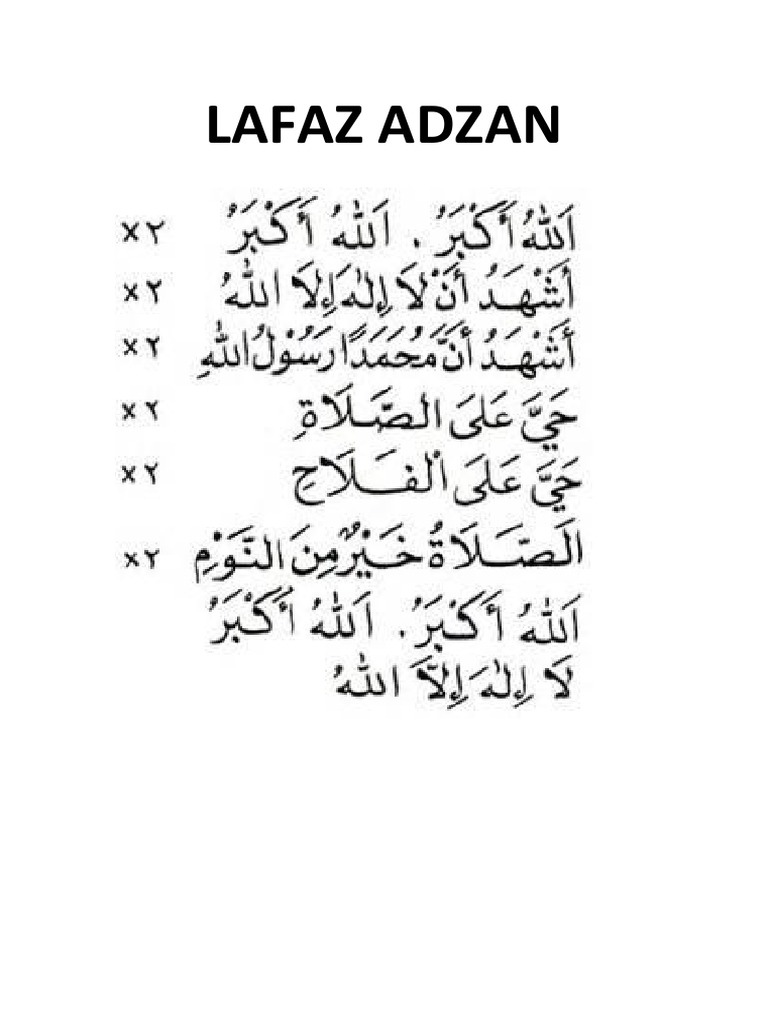 LAFAZ ADZAN
اَللّٰهُ أَكْبَرُ . اَللّٰهُ أَكْبَرُ ×٢
أَشْهَدُ أَنْ لَا إِلٰهَ إِلَّا اللّٰهُ ×٢
أَشْهَدُ أَنَّ مُحَمَّدًا رَسُوْلُ اللّٰهِ ×٢
حَيَّ عَلَى الصَّلَاةِ ×٢
حَيَّ عَلَى الْفَلَاحِ ×٢
اَلصَّلَاةُ خَيْرٌ مِنَ النَّوْمِ ×٢
اَللّٰهُ أَكْبَرُ . اَللّٰهُ أَكْبَرُ
لَا إِلٰهَ إِلَّا اللّٰهُ